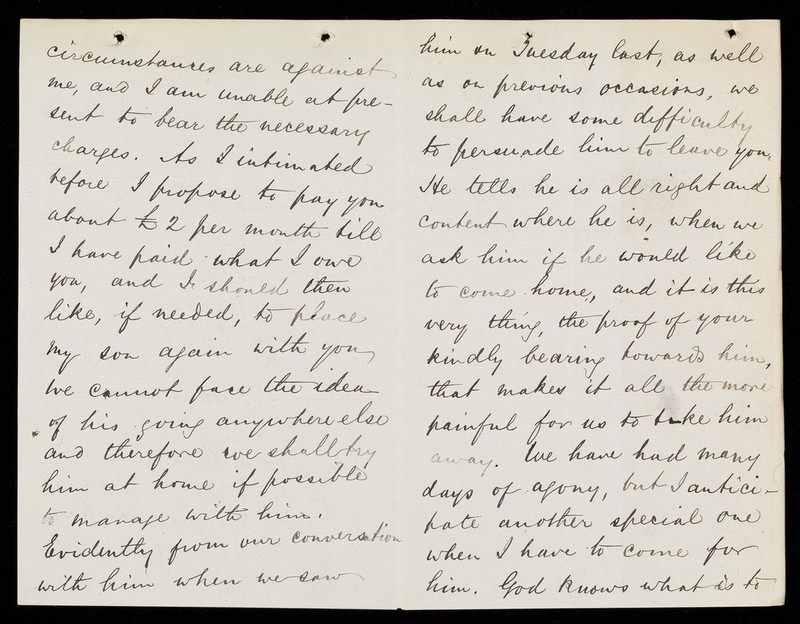 circumstances are against
me, and I am unable at pre-
sent to bear the necessary
charges. As I intimated
before I propose to pay you
about £2 per month till
I have paid what I owe
you, and I should then
like, if needed, to place
my son again with you,
we cannot face the idea
of his going anywhere else
and therefore we shall try
him at home if possible
to manage with him.
Evidently from our conversation
with him when we saw
him on Tuesday last, as well
as on previous occasions, we
shall have some difficulty
to persuade him to leave you.
He tells he is all right and
content where he is, when we
ask him if he would like
to come home, and it is this
very thing, the proof of your
kindly bearing towards him,
that makes it all the more
painful for us to take him
away. We have had many
days of agony, but I antici-
pate another special one
when I have to come for
him. God knows what is to